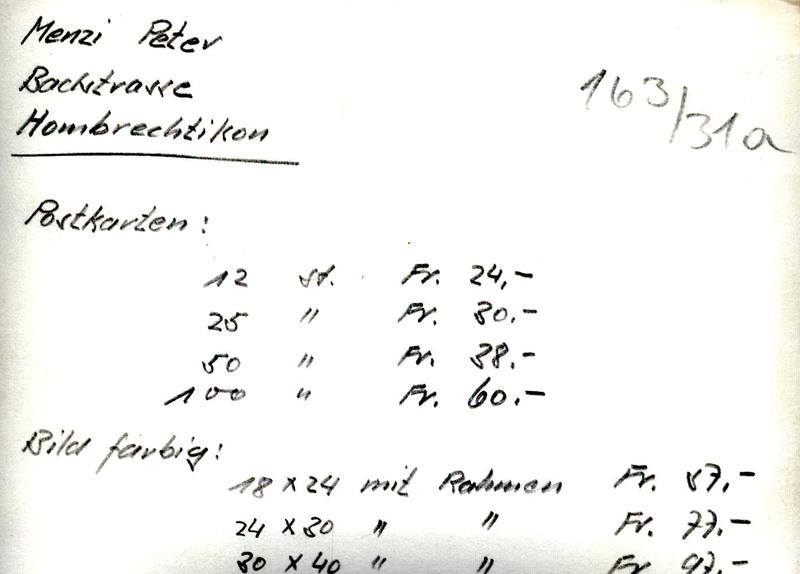 Menzi Peter
Bachstrasse
Hombrechtikon
163/31a
Postkarten:
12 st. Fr. 24,-
25 " Fr. 30.-
50 " Fr. 38.-
100 " Fr. 60.-
Bild farbig:
18 x 24 mit Rahmen Fr. 57.-
24 x 30 " " Fr. 77.-
30 x 40 " " Fr. 97.-